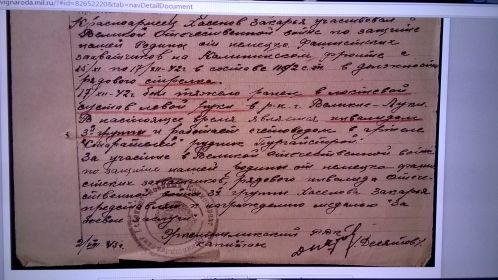 mgnaroda.mil.ru/?#id=826522208&tab=navDetailDocument
Красноармеец Хасенов Закарья участвовал в
Великой Отечественной войне по защите
нашей Родины от немецко-фашистских
захватчиков на Калининском фронте с
по 17/XII-42г. в составе в должности
рядового стрелка.
17/XII-42г. был тяжело ранен в локтевой
сустав левой руки в р-не г. Великие-Луки.
В настоящее время является инвалидом
3й группы и работает счетоводом в артели
"Старатель" рудник
За участие в Великой Отечественной войне
по защите нашей родины от немецко-фаши-
стских захватчиков, рядового инвалида Отече-
ственной войны 3й группы Хасенова Закарья
представляю к награждению медалью "За
боевые заслуги".
капитан